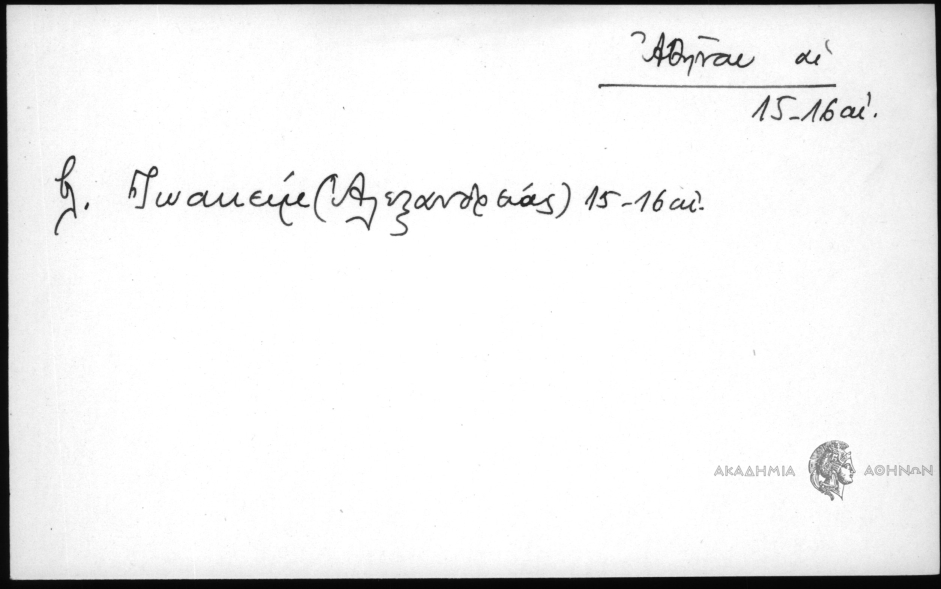 Ἀθῆναι αἱ
15-16 αἰ.
βλ. Ἰωακείμ (Ἀλεξανδρείας) 15-16 αἰ.
ΑΚΑΔΗΜΙΑ ΑΘΗΝΩΝ